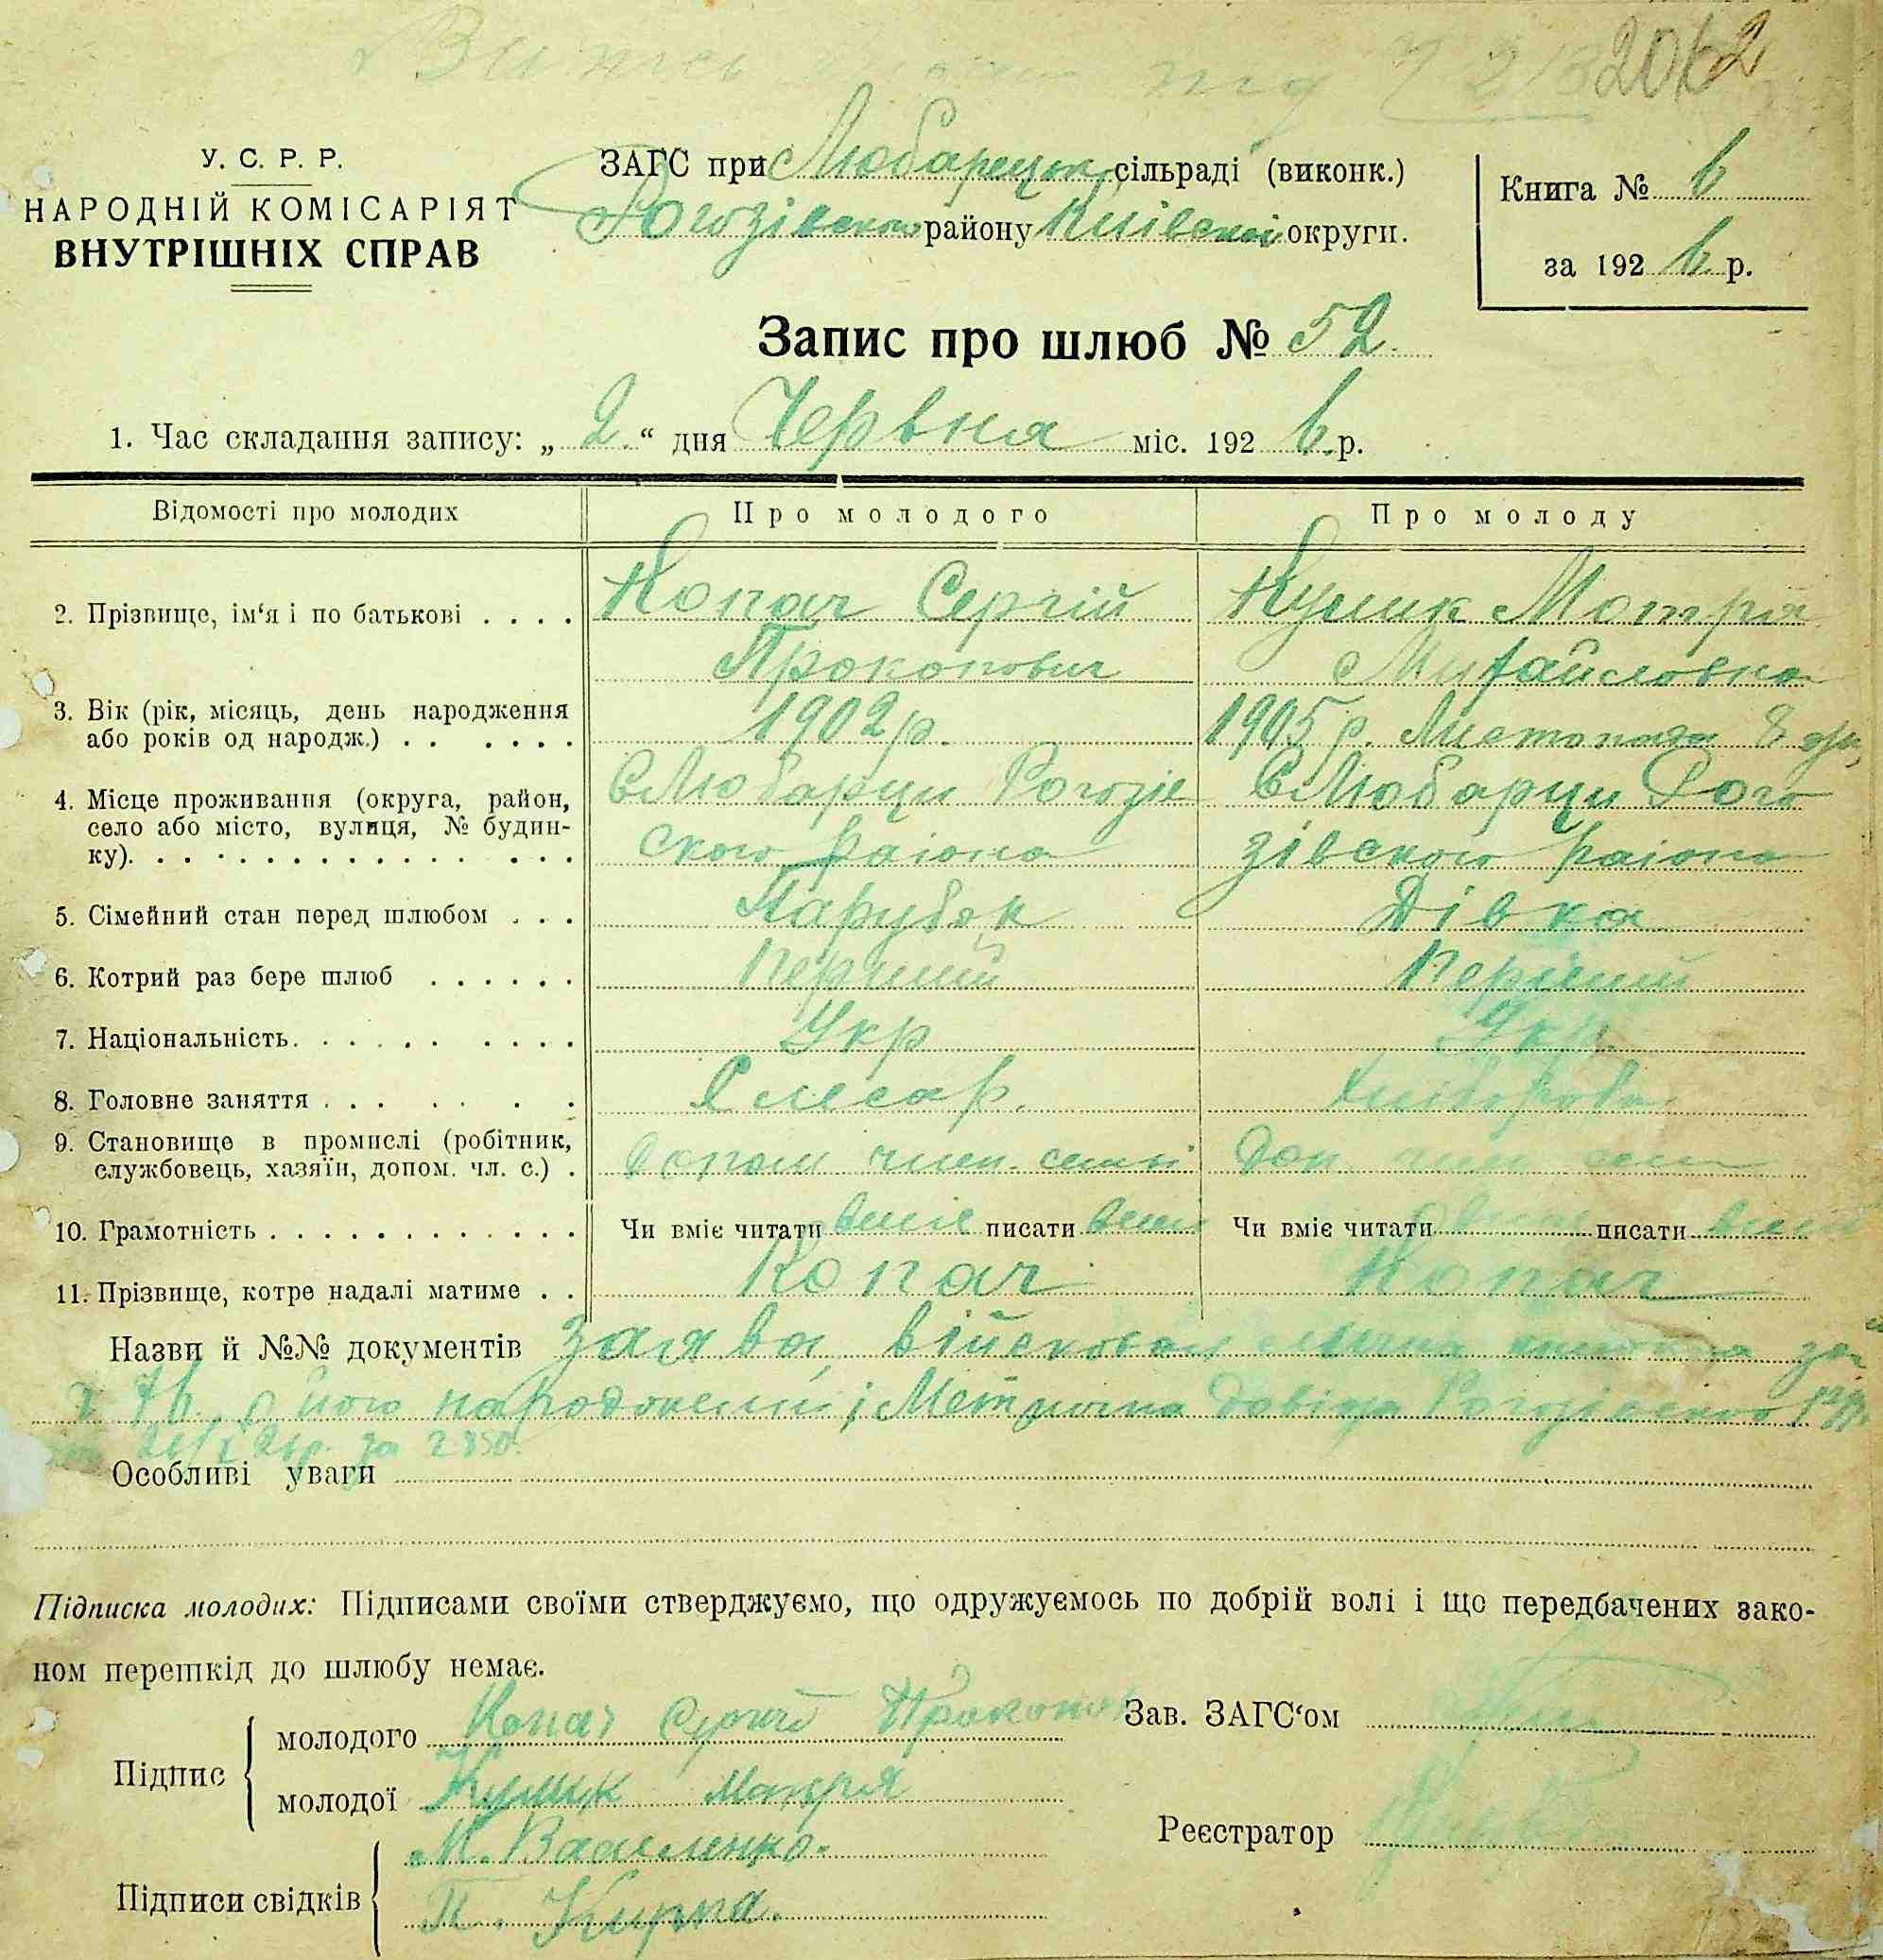 2012
У. С. Р. Р.
НАРОДНІЙ КОМІСАРІЯТ
ВНУТРІШНІХ СПРАВ
ЗАГС при Любарецьк. сільраді (виконк.)
Рогозівсько району Київскої округи.
Книга № 6
за 192 6 р.
Запис про шлюб № 52
1. Час складання запису: „ 2 “ дня Червня міс. 192 6 р.
Відомості про молодих
Про молодого
Про молоду
2. Прізвище, ім‘я і по батькові . . . .
Копач Сергій
Прокопович
Кулик Мотря
Михайловна
3. Вік (рік, місяць, день народження
або років од народж.) . . . . . .
1902 р.
1905 р. Листопада 8 дн.
4. Місце проживання (округа, район,
село або місто, вулиця, № будин-
ку). . . . . . . . . . . . . . .
с Любарци Рогозів
ского раіона
с Любарци Рого
зівского раіона
5. Сімейний стан перед шлюбом . . .
Парубок
Дівка
6. Котрий раз бере шлюб . . . . . .
Перший
Перший
7. Національність. . . . . . . . . .
Укр
Укр.
8. Головне заняття . . . . . . .
Слесар.
Хлібороб
9. Становище в промислі (робітник,
службовець, хазяїн, допом. чл. с.) .
Допом член. семьі
Доп. член сем
10. Грамотність . . . . . . . . . . . .
Чи вміє читати вміє писати вміє
Чи вміє читати писати вміє
11. Прізвище, котре надалі матиме . .
Копач
Копач
Назви й №№ документів заява, військовая за
№ 76 р його народження і Метрична довідка Рогозівского
за 2850.
Особливі уваги
Підписка молодих: Підписами своїми стверджуємо, що одружуємось по добрій волі і що передбачених зако-
ном перешкід до шлюбу немає.
Підпис
молодого Копач Сергій Прокопов
молодої Кулик Мотря
Зав. ЗАГС‘ом
Реєстратор
Підписи свідків
М. Василенко.
П. Кирпа.